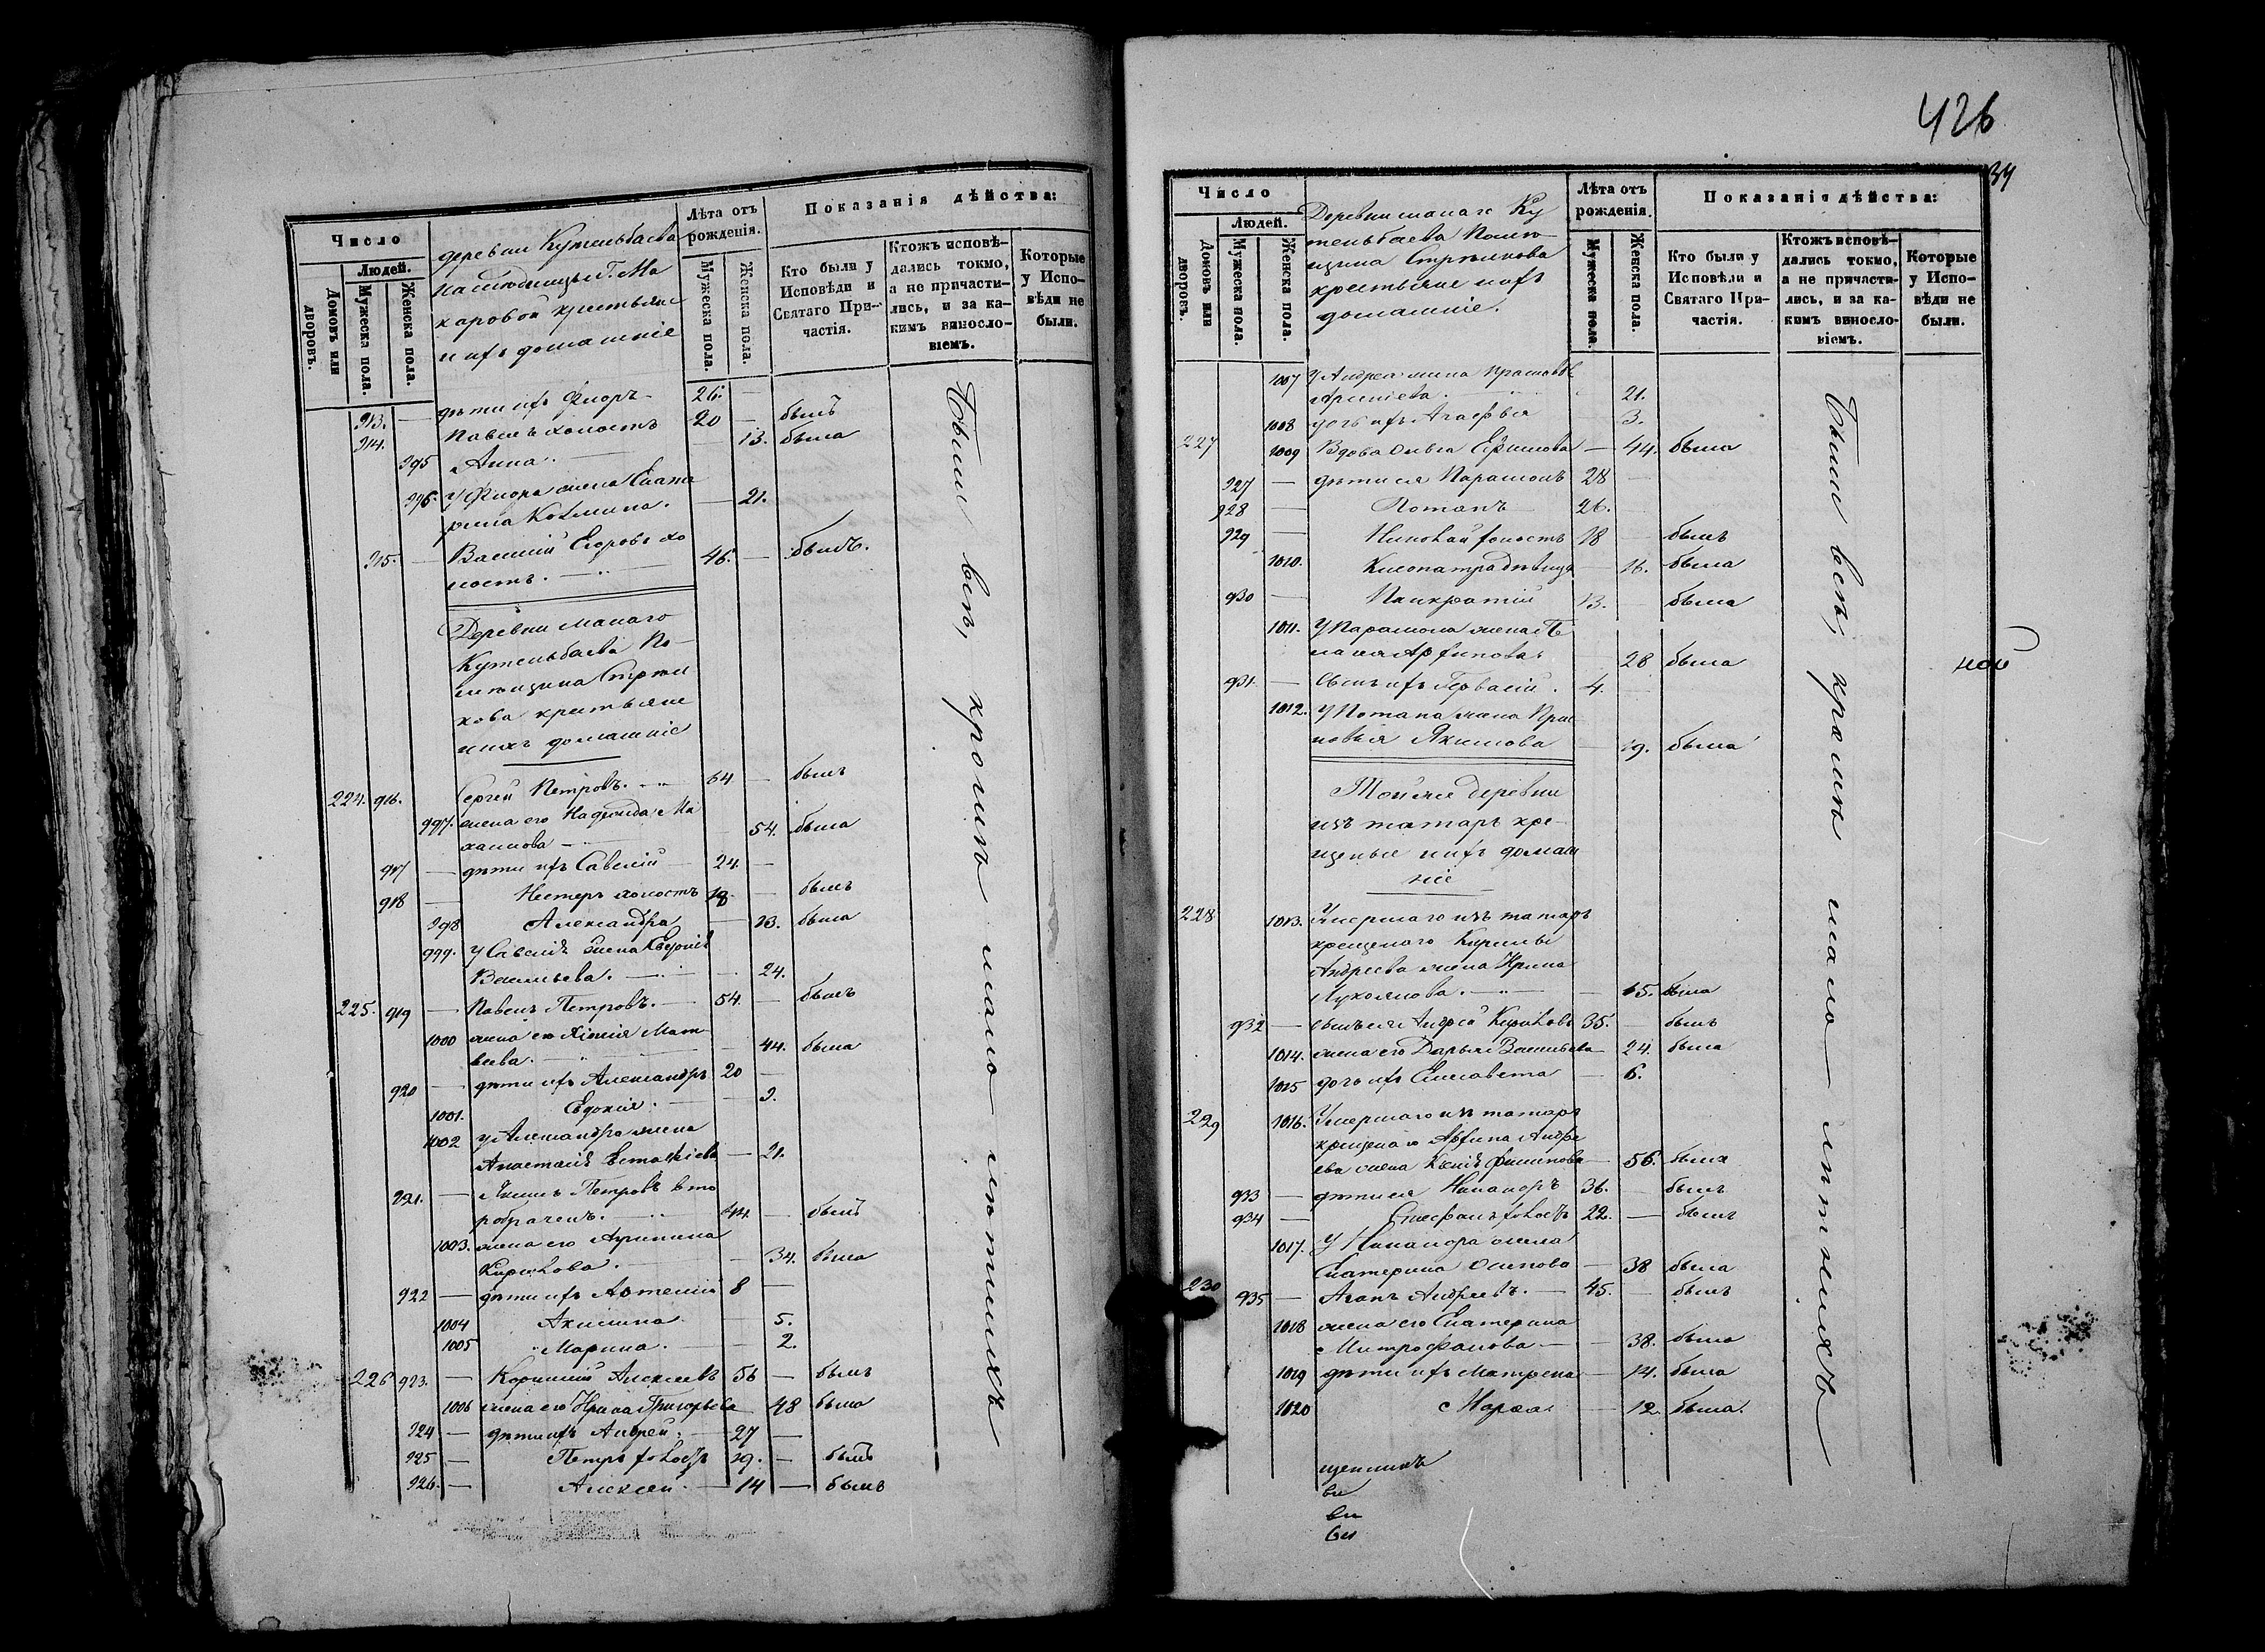 Число
Людей.
Домовъ или дворовъ.
Мужеска пола.
Женска пола.
деревни Кутельбаева
карово й крестьяне
и ихъ домашніе
Лѣта отъ рожденія.
Мужеска пола.
Женска пола.
Показанія дѣйства:
Кто были у Исповѣди и Святаго Причастія.
Ктожъ исповѣдались токмо, а не причастились, и за какимъ винословіемъ.
Которые у Исповѣди не были.
913. — дѣти ихъ Фиоръ 26. —
914. Павелъ холостъ 20 — былъ
995 Анна. — 13. была
996. У Фиора жена Екате
рина Козмина. — 21.
915. — Василий Егоровъ хо
лостъ. — 46. — былъ.
Деревни малаго
Кутельбаева По-
мѣщика Стрѣл
кова крестьяне
и ихъ домашніе
224. 916. Сергей Петровъ. 64 — былъ
997. жена его Надежда Ми
хаилова — 54. была
917 — дѣти ихъ Савелій 24. —
918 — Нестеръ холостъ 18 — былъ
998 Александра — 13. была
999. У Савелія жена Евдокія
Васильева. — 24.
225. 919 — Павелъ Петровъ. — 54. — былъ
1000 жена его Ксенія Мат
веева. — 44. была
920 — дѣти ихъ Александръ 20 —
1001. Евдокія. — 9.
1002 У Александра жена
Анастасія Евстафіева — 21.
921. — Якимъ Петровъ вто
робраченъ. 44. — былъ
1003. жена его Агрипина
Кирилова. — 34. была
922 — дѣти ихъ Артемій 8 —
1004 Акилина — 5.
1005 Марина. — 2.
226 923. — Корнилій Алексеевъ 56 — былъ
1006 жена его Ирина Григорьева 48 была
924 — дѣти ихъ Андрей. — 27 —
925 — Петръ холостъ 19. — былъ
926. — Алексей — 14 — былъ
Были всѣ, кромѣ мало-лѣтнихъ
426
34
Число
Людей.
Домовъ или дворовъ.
Мужеска пола.
Женска пола.
Деревни малаго Ку
тельбаева Помѣ
щика Стрѣлкова
крестьяне и ихъ
домашніе.
Лѣта отъ рожденія.
Мужеска пола.
Женска пола.
Показанія дѣйства:
Кто были у Исповѣди и Святаго Причастія.
Ктожъ исповѣдались токмо, а не причастились, и за какимъ винословіемъ.
Которые у Исповѣди не были.
1007 У Андрея жена Прасковья
Арсениева. 21.
1008 дочь ихъ Агафья 3.
227 1009 Вдова Ольга Ефимова — 44. была
927 — дѣти ея Парамонъ 28 —
928 — Потапъ 26. —
929 — Николай холостъ 18 — былъ
1010. Клеопатра дѣвица — 16. была
930 — Панкратій 13. — была
1011. У Парамона жена Пе
лагея Архипова. — 28 была
931 — сынъ ихъ Гервасій. 4. —
1012. У Потапа жена Прас
ковья Якимова — 19. была
Той же деревни
изъ татаръ кре-
щеные и ихъ домаш
ніе
228 1013. Умершаго изъ татаръ
крещенаго Кирилы
Андреева жена Ирина
Лукоянова. — 65. была
932 — сынъ ея Андрей Кириловъ 35. — былъ
1014. жена его Дарья Васильева — 24. была
1015 дочь ихъ Елисавета — 6.
229 1016. Умершаго изъ татаръ
крещенаго Архипа Андре
ева жена Ксенія Филипова — 56. была
933 — дѣти ея Никаноръ 36. — былъ
934 — Стефанъ холостъ 22. — былъ
1017. У Никанора жена
Екатерина Осипова — 38 была
230 935 — Агапъ Андреевъ. — 45. — былъ
1018 жена его Екатерина
Митрофанова — 38. была
1019 дѣти ихъ Матрена — 14. была
1020 Марѳа — 12. была.
Были всѣ, кромѣ мало-лѣтнихъ
ной
щенникъ